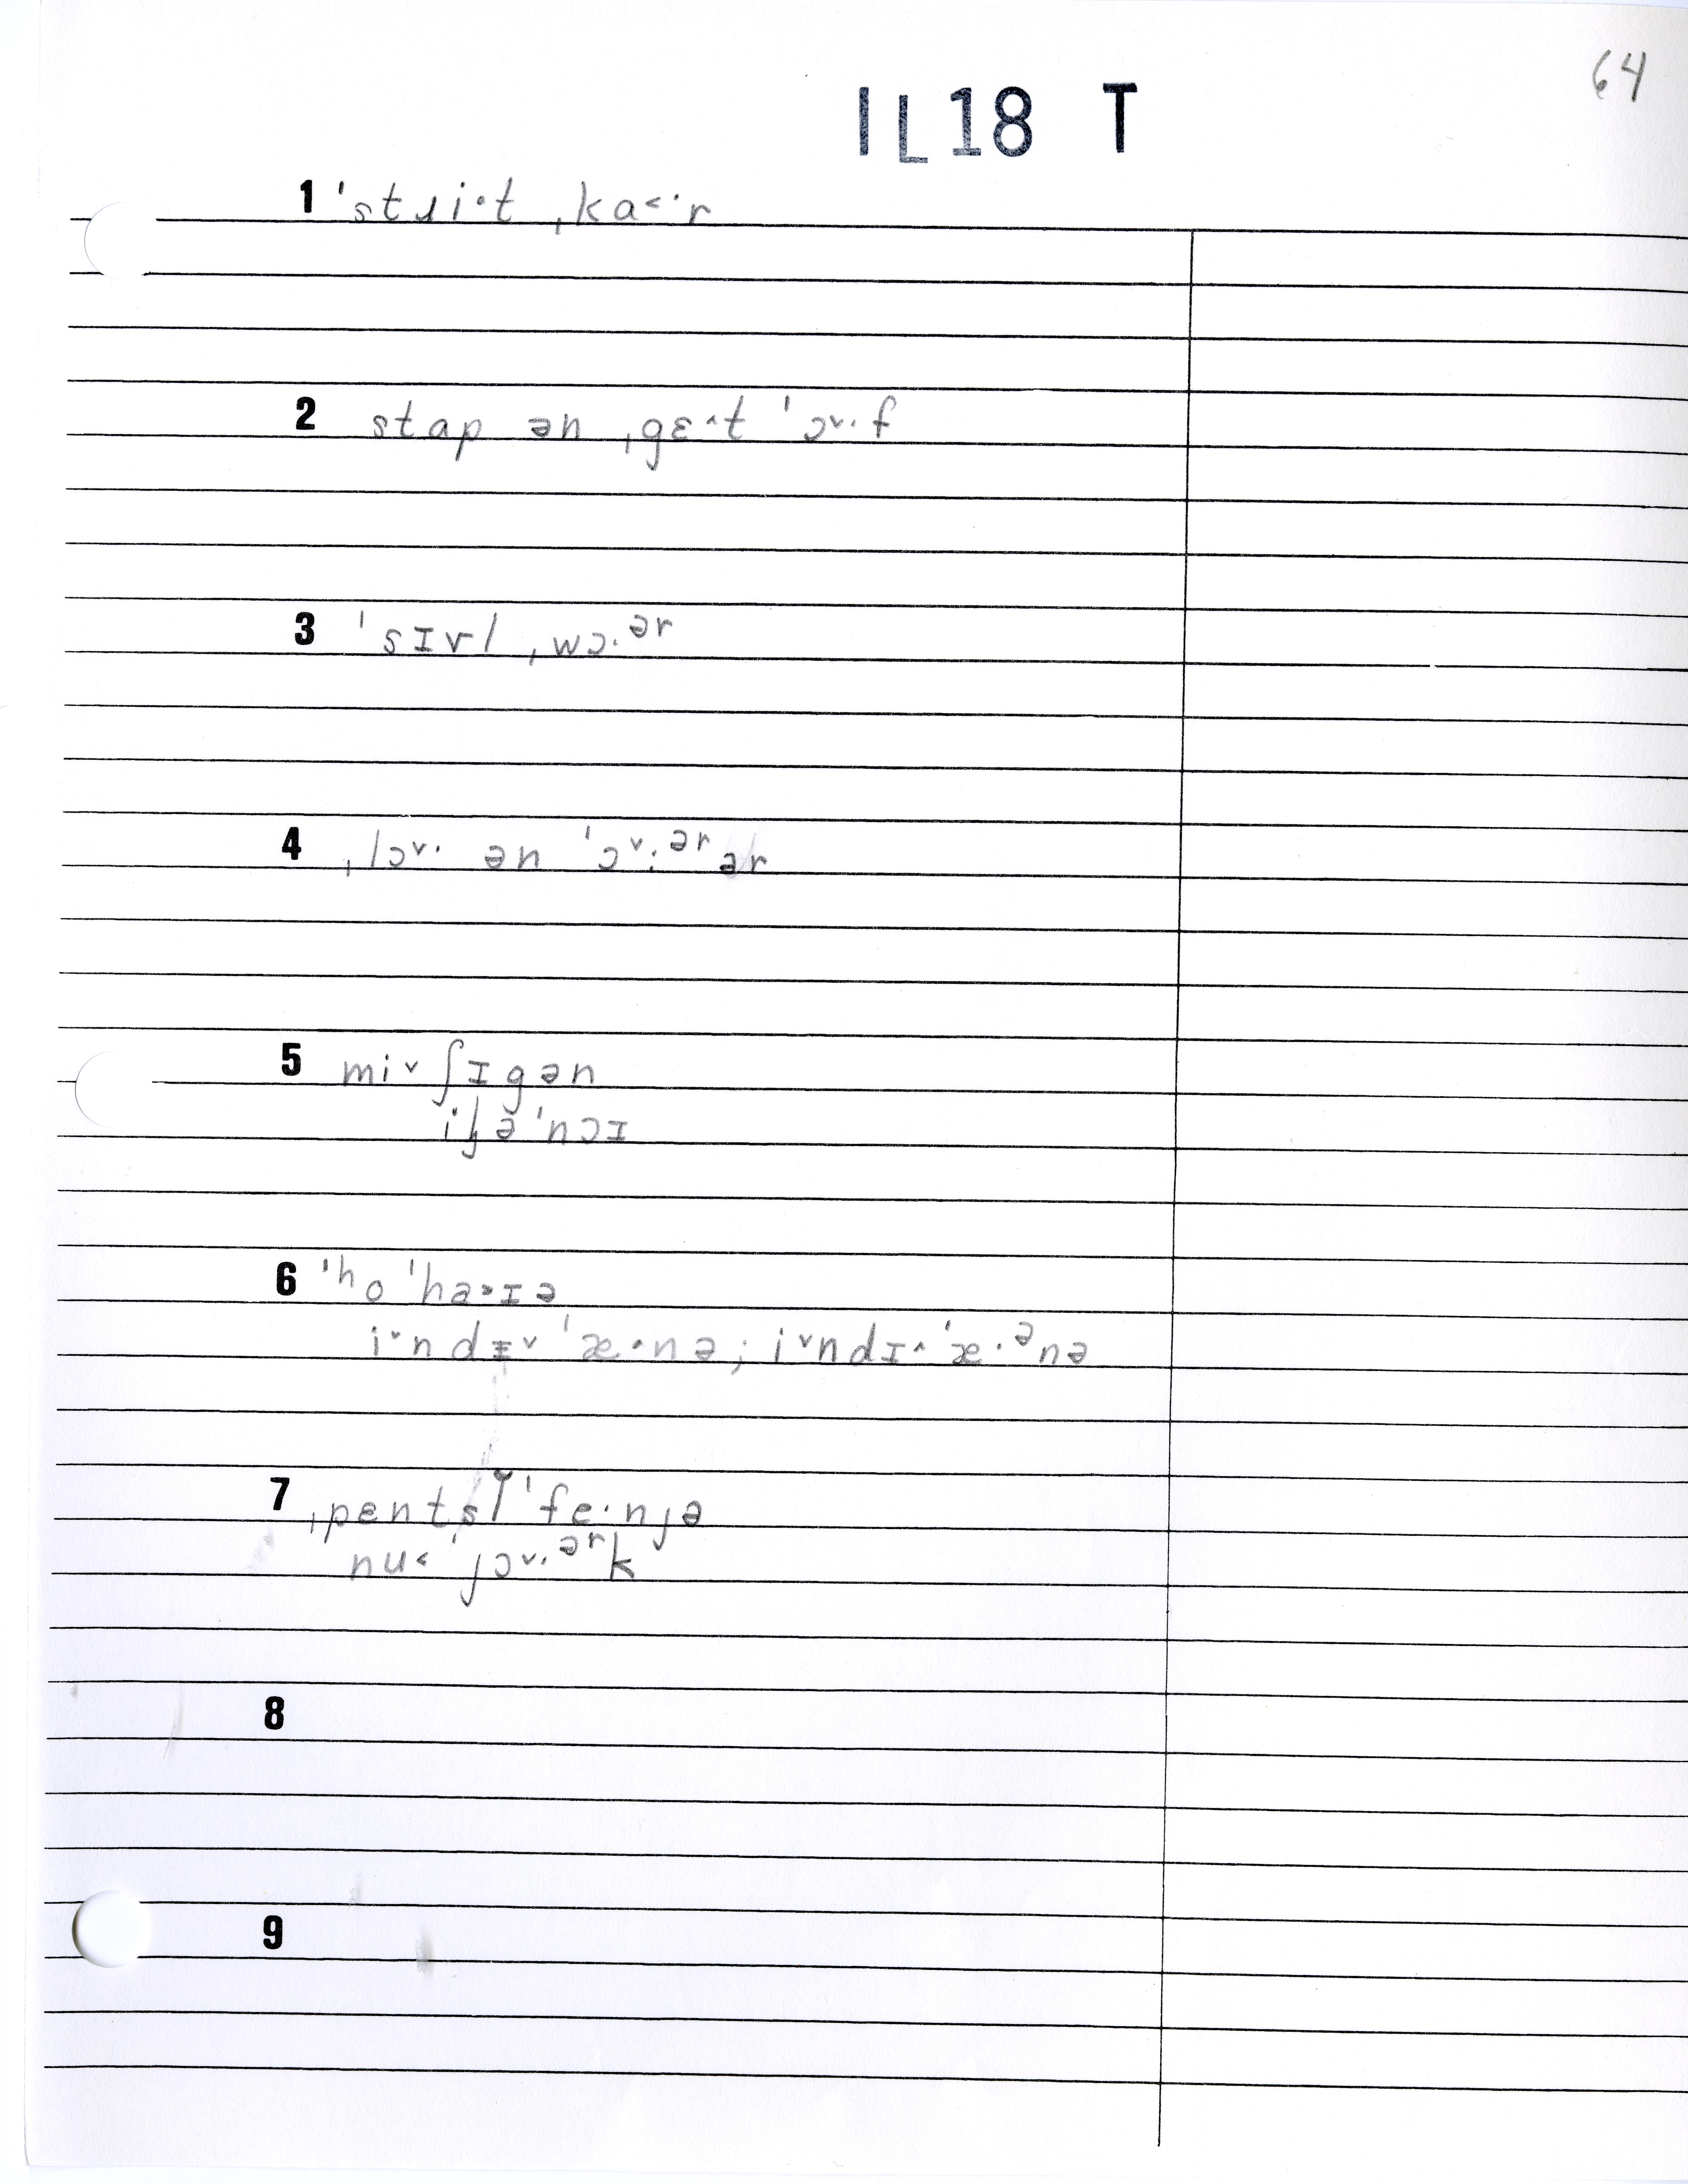 64
IL18 T
1 ˈstɹi·t ˌka˂·r
2 stap ən ˌgɛ^t ˈɔ˅·f
3 ˈsɪvl ˌwɔ·ər
4 ˌlɔ˅· ən ˈɔ˅·ər ər
5 mi˅ʃɪgən
ilə'nɔɪ
6 ˈho ˈha˃ɪə
i˅ndɪ˅ ˈæ·nə; i˅ndɪ^ˈæ·ənə
7 ˌpentsl̆ ˈfe·njə
nu˂ ˈjɔ˅·ərk
8
9